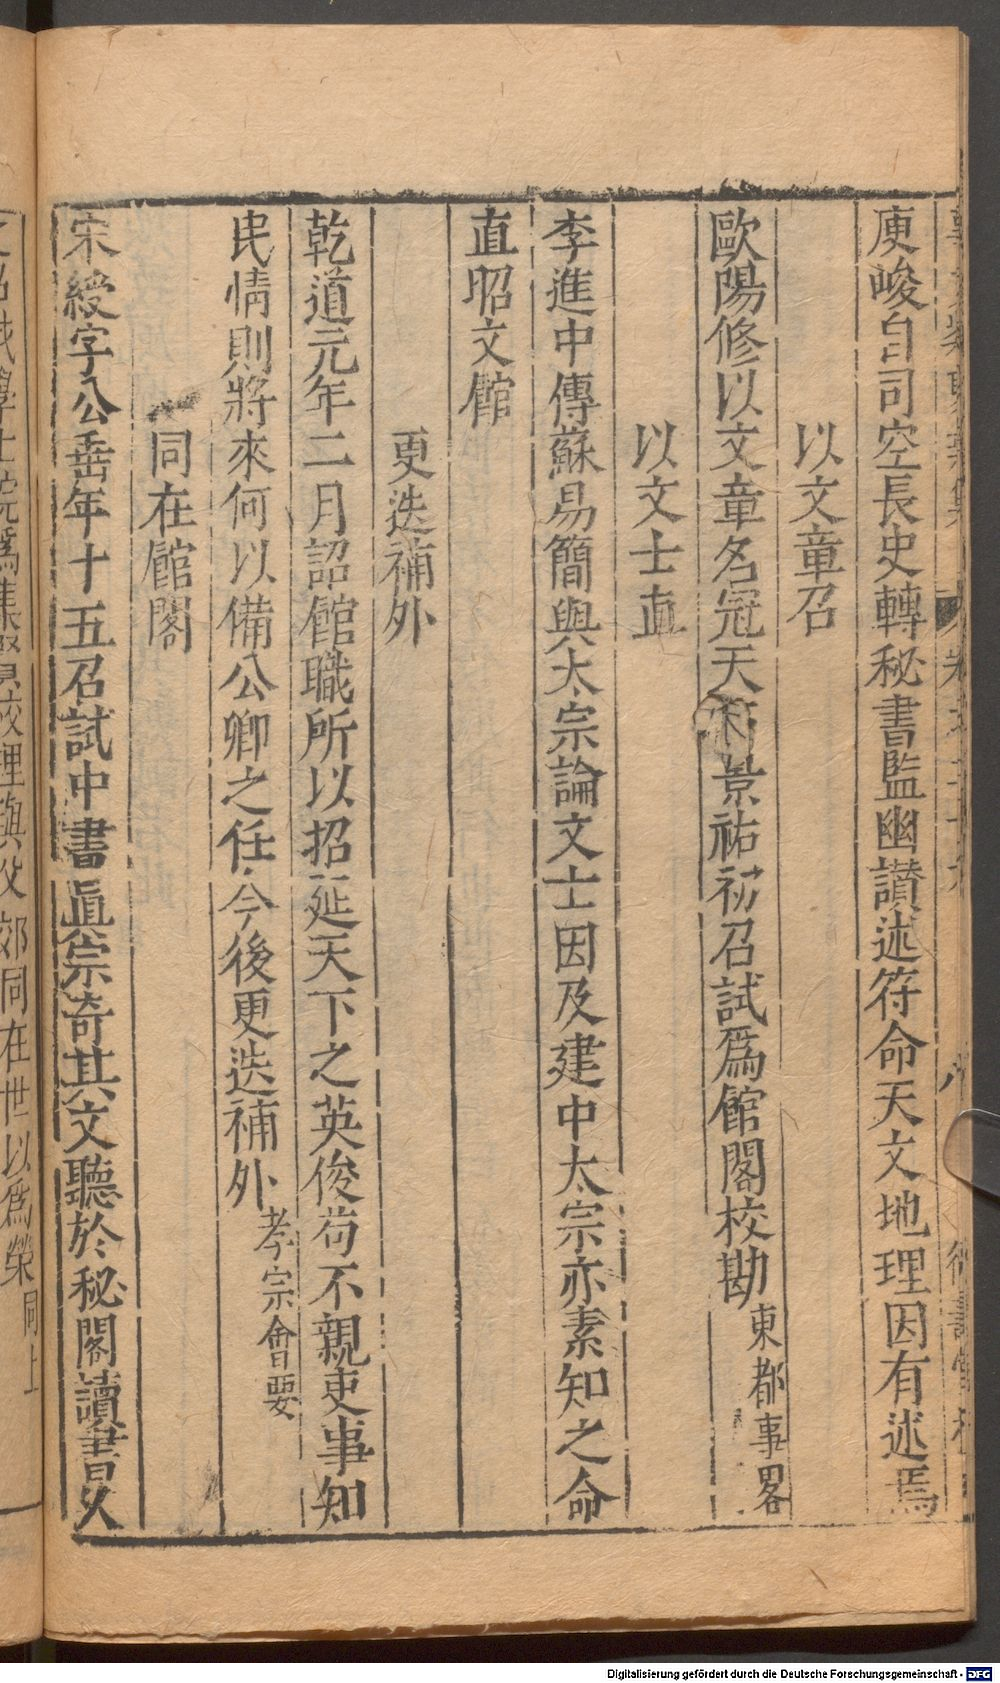 庾峻自司空長史轉秘書監幽讃述符命天文地理因有述焉
以文章召
歐陽修以文章名冠天下景祐初召試爲館閣校勘東都事畧
以文士直
李進中傳蘇易簡與太宗論文士因及建中太宗亦素知之命
直昭文館
更迭補外
乾道元年二月詔館職所以招延天下之英俊苟不親吏事知
民情則將來何以備公卿之任今後更迭補外孝宗會要
同在館閣
宋綬字公垂年十五召試中書眞宗奇其文聽於秘閣讀書父
學士院爲集賢校理與父郊同在世以爲榮同上
Digitalisierung gefördert durch die Deutsche Forschungsgemeinschaft - DFG